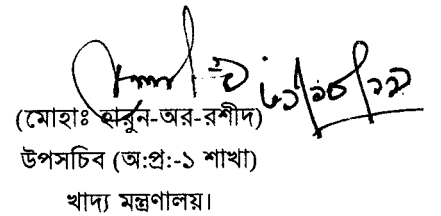 (মোহাঃ হারুন-অর-রশীদ)
উপসচিব (অ:প্র:-১ শাখা)
খাদ্য মন্ত্রণালয়।